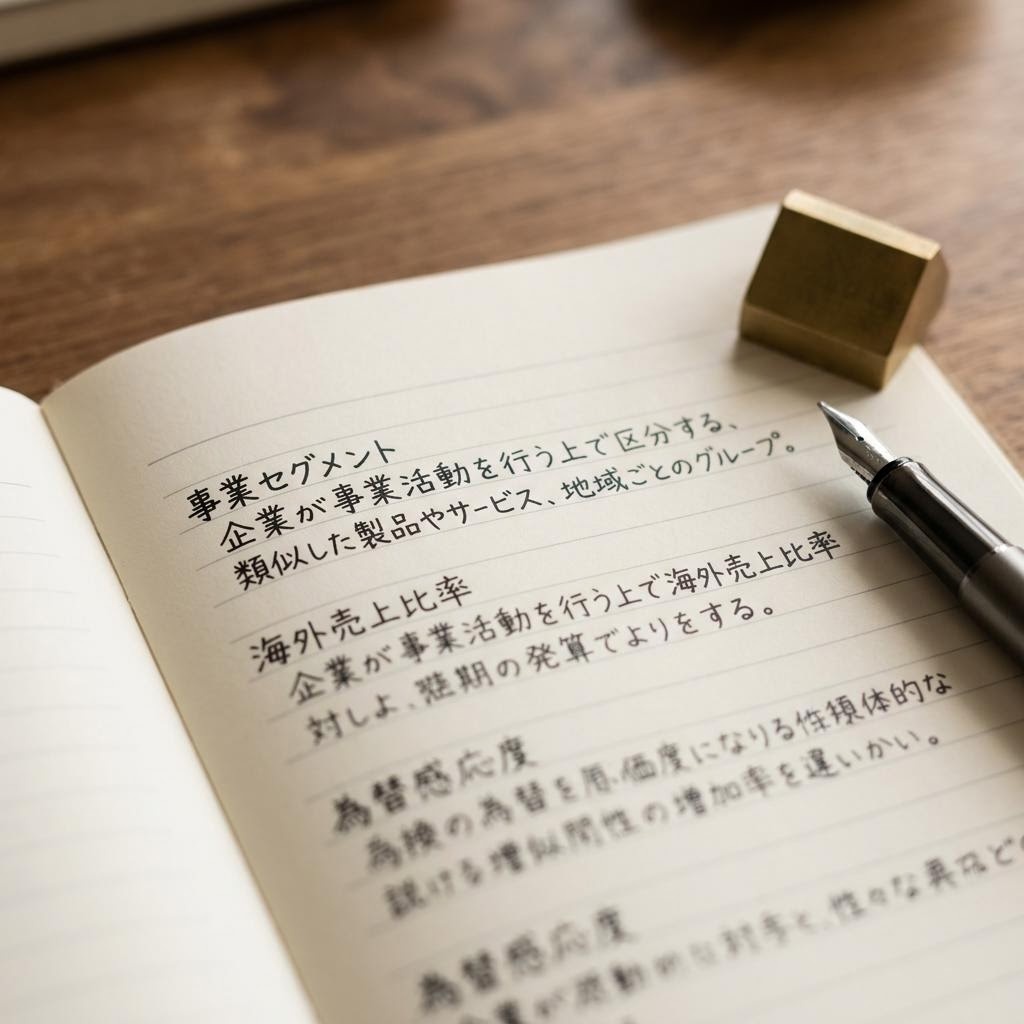 事業セグメント
企業が事業活動を行う上で区分する、
類似した製品やサービス、地域ごとのグループ。
海外売上比率
企業が事業活動を行う上で海外売上比率
対しよ、期の発算でよりをする。
為替感応度
為換の為替を原価度になりる体的な
増似間性の増加率を違いかい。
為替感応度